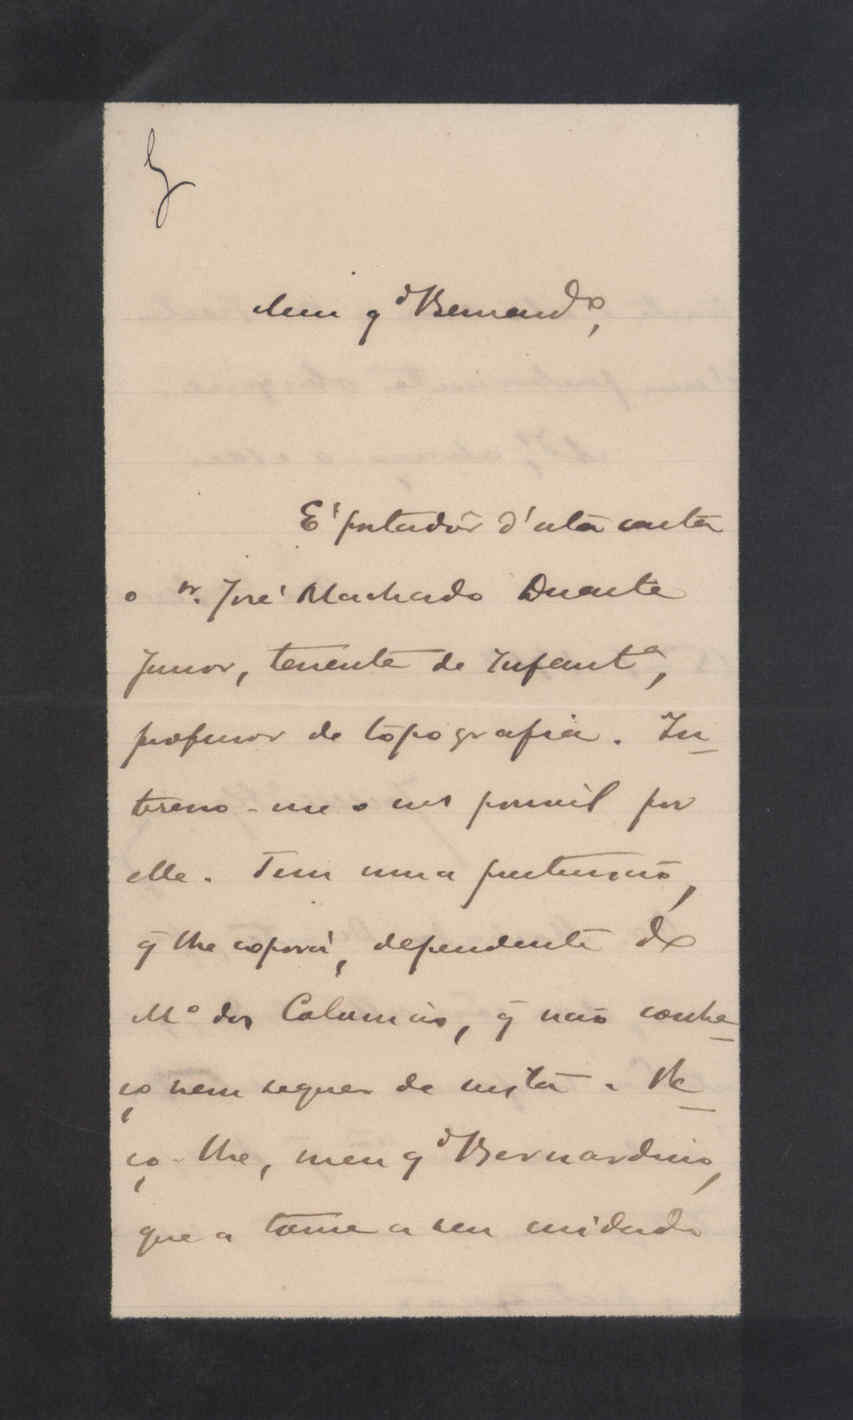 Meu q.do Bernardo,
E' portador d'esta carta
o sr. José Machado Duarte
Junior, tenente de Infant.a,
professor de topografia. In-
teresso-me o mais possivel por
elle. Tem uma pretensão,
q̃ lhe exporá, dependente do
M.o das Colonias, q̃ não conhe-
ço nem sequer de vista. Pe-
ço-lhe, meu q.do Bernardino,
que a tome a seu cuidado